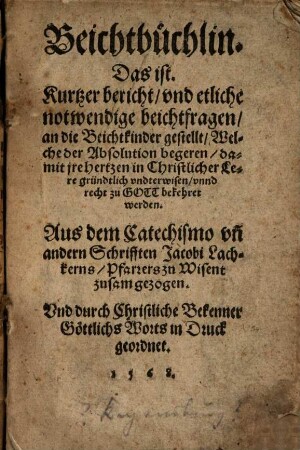 Beichtbüchlin.
Das ist.
Kurtzer bericht/ vnd etliche
notwendige beichtfragen/
an die Beichtkinder gestellt/ Wel-
che der Absolution begeren/ da-
mit jre hertzen in Christlicher Le-
re gründtlich vndterwisen/ vnnd
recht zu GOTT bekehret
werden.
Aus dem Catechismo vñ
andern Schrifften Jacobi Lach-
kerns/ Pfarrers zu Wisent
zusam gezogen.
Vnd durch Christliche Bekenner
Göttlichs Worts in Druck
geordnet.
1568.